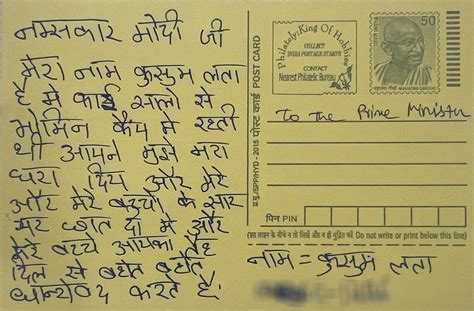 नमस्कार मोदी जी
मेरा नाम कुसुम लता
है मै काई सालो से
मोमिन कैंप मे रहती
थी आपने मुझे मेरा
घरा दिया और मेरे
और मेरे बच्चो के सार
पर छात दी मै और
मेरे बच्चे आपका तह
दिल से बहोत बहोत
धान्येवाद करते है.
Philately: King Of Hobbies
COLLECT
INDIA POSTAGE STAMPS
CONTACT
Nearest Philatelic Bureau
50
भारत INDIA
महात्मा गांधी MAHATMA GANDHI
पोस्ट कार्ड POST CARD
To the Prime Minister
पिन PIN
(इस लाइन के नीचे न तो लिखें और न ही मुद्रित करें Do not write or print below this line)
नाम = कुसुम लता